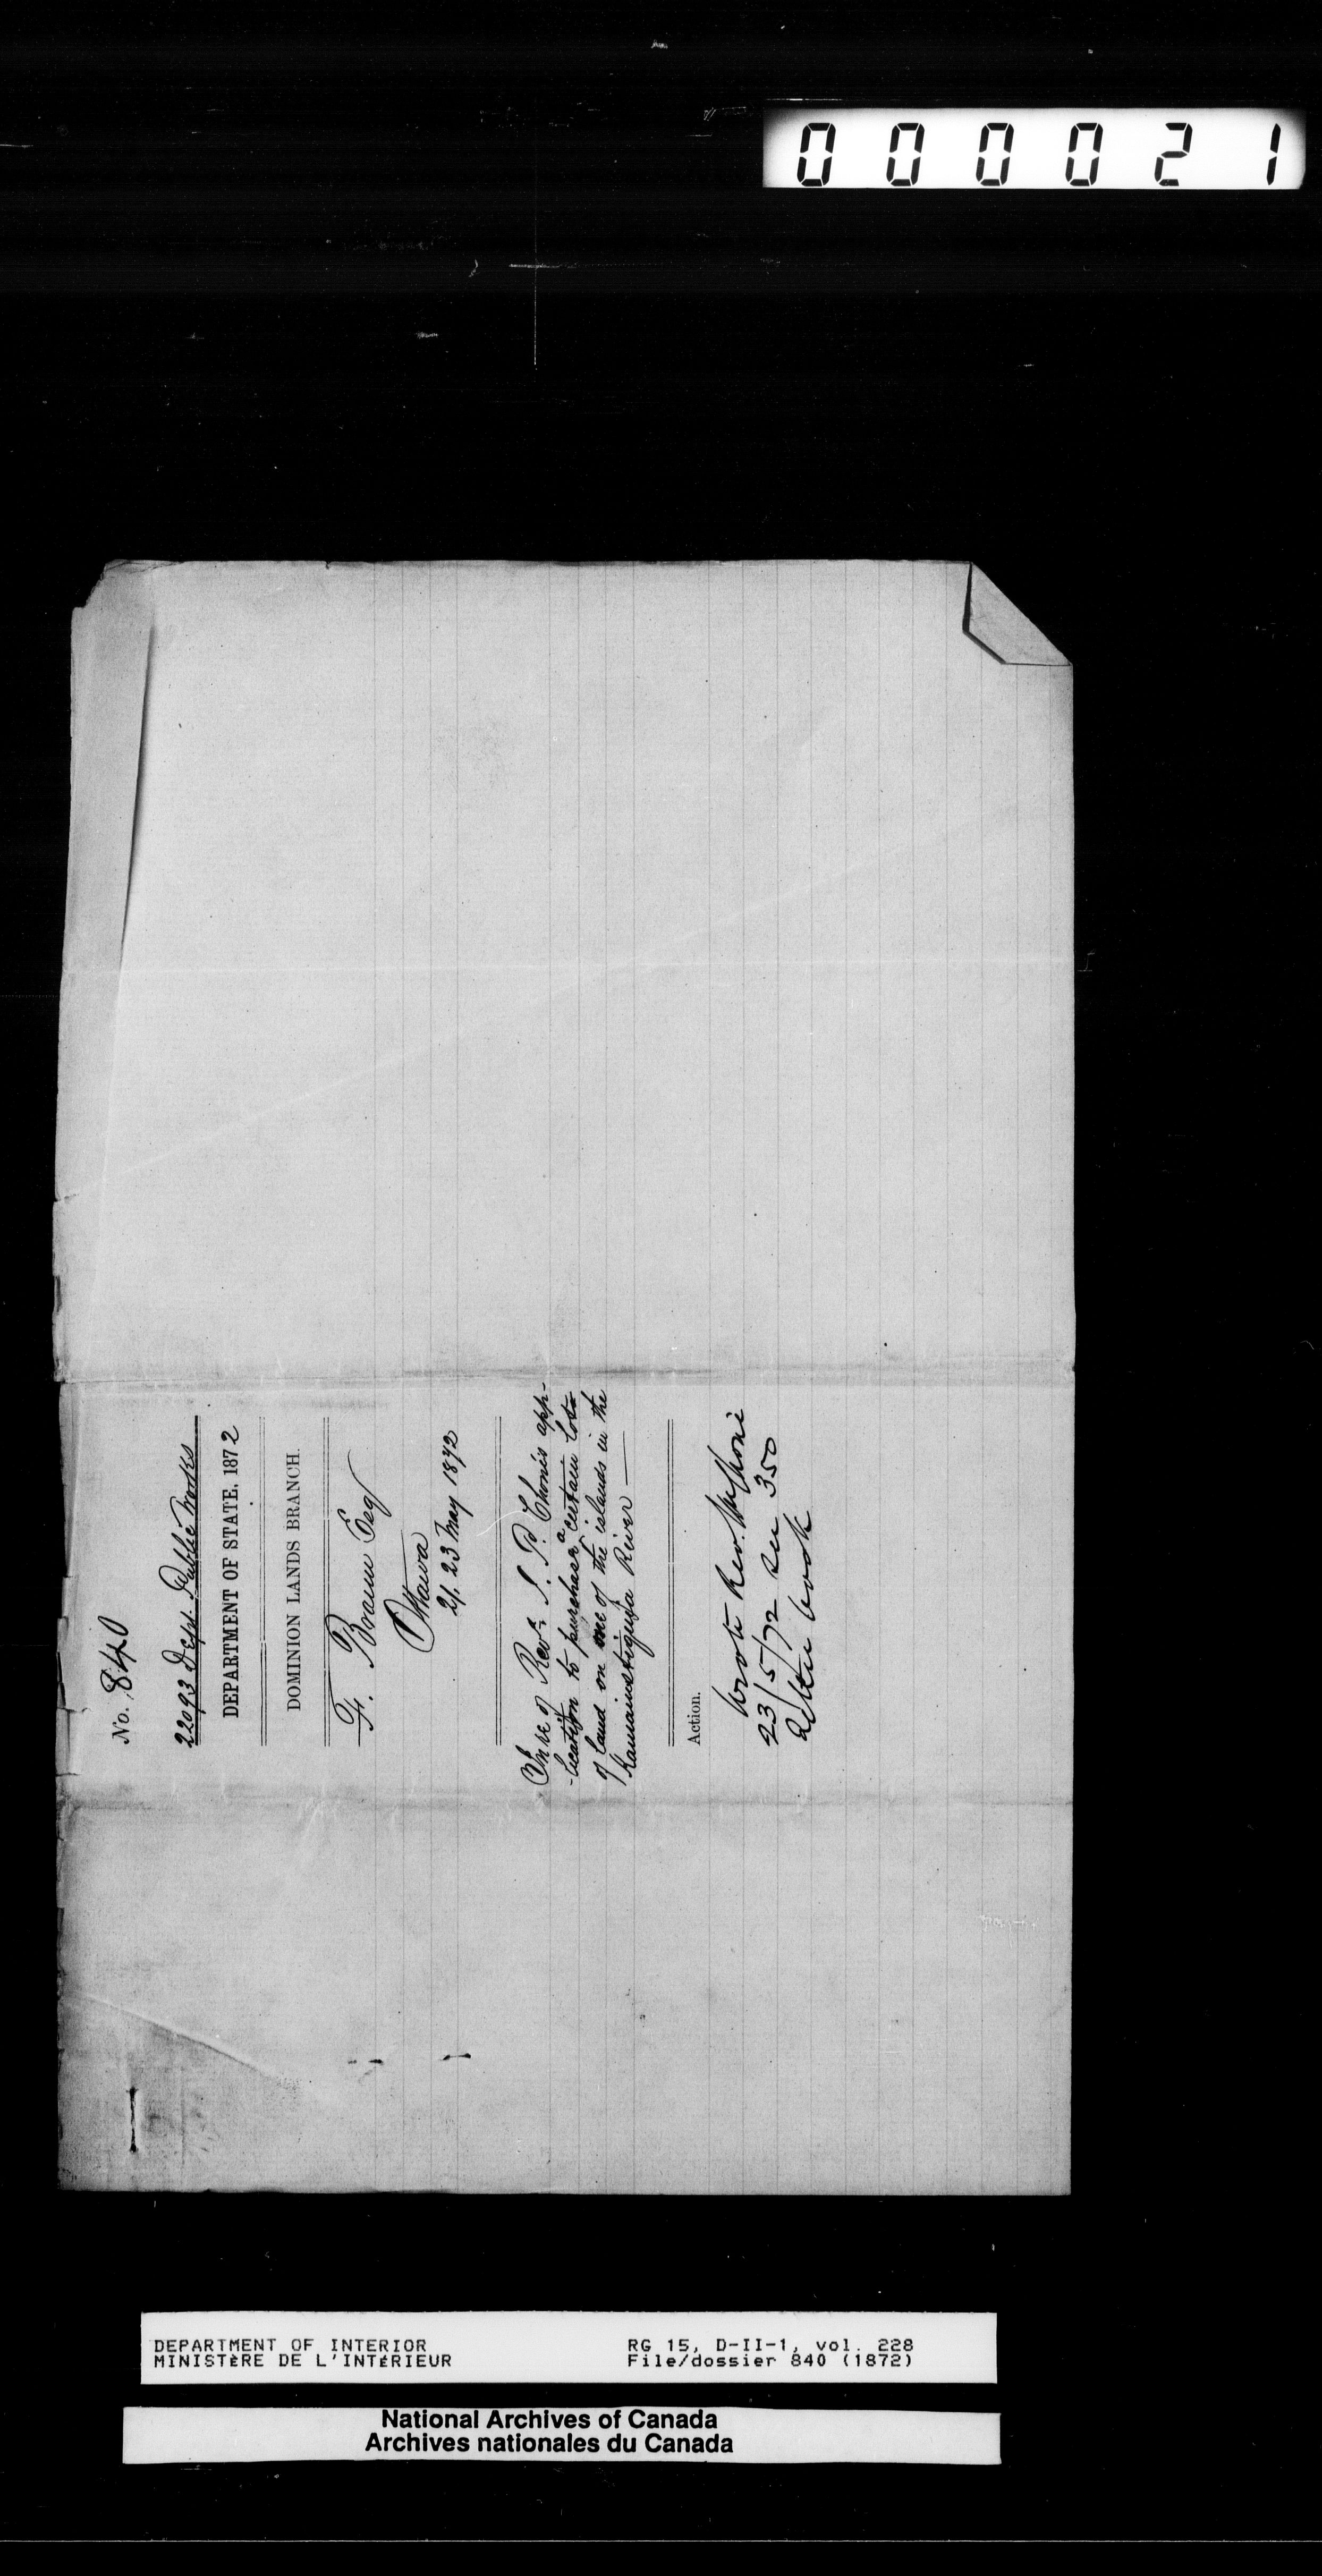 000021
No. 840
22093 Dept. Public Works
DEPARTMENT OF STATE, 1872
DOMINION LANDS BRANCH.
F. Braun Esq
Ottawa
21. 23 May 1872
In re of Revd. S. P. Chonés app-
-lication to purchase a certain lots
of land on one of the islands in the
Kaministiquia River —
Action.
Wrote Rev.
23/5/72 see 350
letter book
DEPARTMENT OF INTERIOR
MINISTÈRE DE L'INTÉRIEUR
RG 15, D-II-1, vol. 228
File/dossier 840 (1872)
National Archives of Canada
Archives nationales du Canada